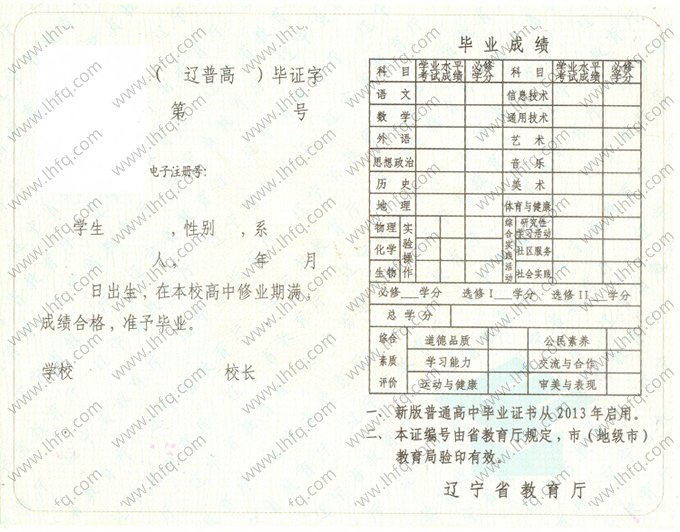 (　辽普高　)毕证字
第　　　　号
电子注册号:
学生　　　,性别　,系
人,　　　年　　月
日出生,在本校高中修业期满,
成绩合格,准予毕业。
学校　　　　　　校长
毕业成绩
科 目 学业水平考试成绩 必修学分 科 目 学业水平考试成绩 必修学分
语 文 信息技术
数 学 通用技术
外 语 艺 术
思想政治 音 乐
历 史 美 术
地 理 体育与健康
物理 实验操作 综合实践活动 研究性学习活动
化学 社区服务
生物 社会实践
必修___学分 选修I___学分 选修II___学分
总 学 分
综合素质评价 道德品质 公民素养
学习能力 交流与合作
运动与健康 审美与表现
一、新版普通高中毕业证书从2013年启用。
二、本证编号由省教育厅规定,市(地级市)
教育局验印有效。
辽宁省教育厅
www.lhfq.com